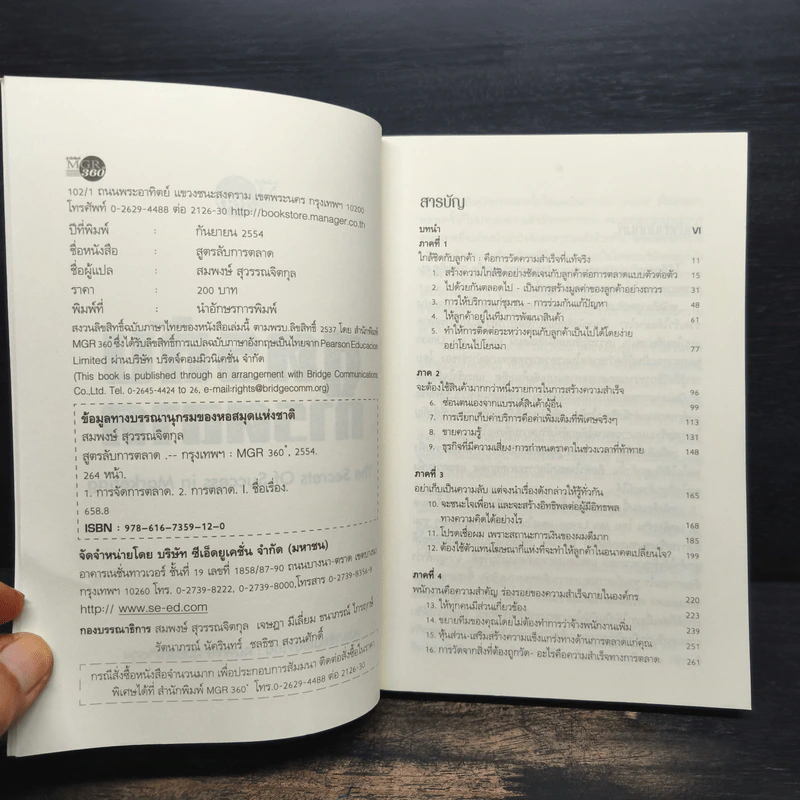 MGR 360
102/1 ถนนพระอาทิตย์ แขวงชนะสงคราม เขตพระนคร กรุงเทพฯ 10200
โทรศัพท์ 0-2629-4488 ต่อ 2126-30 http://bookstore.manager.co.th
ปีที่พิมพ์ : กันยายน 2554
ชื่อหนังสือ : สูตรลับการตลาด
ชื่อผู้แปล : สมพงษ์ สุวรรณจิตกุล
ราคา : 200 บาท
พิมพ์ที่ : นำอักษรการพิมพ์
สงวนลิขสิทธิ์ฉบับภาษาไทยของหนังสือเล่มนี้ ตามพรบ.ลิขสิทธิ์ 2537 โดย สำนักพิมพ์
MGR 360° ซึ่งได้รับลิขสิทธิ์การแปลฉบับภาษาอังกฤษเป็นไทยจาก Pearson Educacion
Limited ผ่านบริษัท บริดจ์คอมมิวนิเคชั่น จำกัด
(This book is published through an arrangement with Bridge Communications
Co.,Ltd. Tel. 0-2645-4424 to 26, e-mail:rights@bridgecomm.org)
ข้อมูลทางบรรณานุกรมของหอสมุดแห่งชาติ
สมพงษ์ สุวรรณจิตกุล
สูตรลับการตลาด .-- กรุงเทพฯ : MGR 360°, 2554.
264 หน้า.
1. การจัดการตลาด. 2. การตลาด. I. ชื่อเรื่อง.
658.8
ISBN : 978-616-7359-12-0
จัดจำหน่ายโดย บริษัท ซีเอ็ดยูเคชั่น จำกัด (มหาชน)
อาคารเนชั่นทาวเวอร์ ชั้นที่ 19 เลขที่ 1858/87-90 ถนนบางนา-ตราด เขตบางนา
กรุงเทพฯ 10260 โทร. 0-2739-8222, 0-2739-8000,โทรสาร 0-2739-8356-9
http:// www.se-ed.com
กองบรรณาธิการ สมพงษ์ สุวรรณจิตกุล เจษฎา มีเลี่ยม ธนาภรณ์ ไกรฤกษ์
รัตนาภรณ์ นัครินทร์ ชลธิชา สงวนศักดิ์
กรณีสั่งซื้อหนังสือจำนวนมาก เพื่อประกอบการสัมมนา ติดต่อสั่งซื้อในราคา
พิเศษได้ที่ สำนักพิมพ์ MGR 360° โทร.0-2629-4488 ต่อ 2126-30
สารบัญ
บทนำ VI
ภาคที่ 1
ใกล้ชิดกับลูกค้า : คือการวัดความสำเร็จที่แท้จริง 11
1. สร้างความใกล้ชิดอย่างชัดเจนกับลูกค้าต่อการตลาดแบบตัวต่อตัว 15
2. ไปด้วยกันตลอดไป - เป็นการสร้างมูลค่าของลูกค้าอย่างถาวร 31
3. การให้บริการแก่ชุมชน - การร่วมกันแก้ปัญหา 48
4. ให้ลูกค้าอยู่ในทีมการพัฒนาสินค้า 61
5. ทำให้การติดต่อระหว่างคุณกับลูกค้าเป็นไปได้โดยง่าย
อย่าโยนไปโยนมา 77
ภาค 2
จะต้องใช้สินค้ามากกว่าหนึ่งรายการในการสร้างความสำเร็จ 96
6. ซ่อนตนเองจากแบรนด์สินค้าผู้อื่น 101
7. การเรียกเก็บค่าบริการคือค่าเพิ่มเติมที่พิเศษจริงๆ 113
8. ขายความรู้ 131
9. ธุรกิจที่มีความเสี่ยง-การกำหนดราคาในช่วงเวลาที่ท้าทาย 148
ภาคที่ 3
อย่าเก็บเป็นความลับ แต่จงนำเรื่องดังกล่าวให้รู้ทั่วกัน 165
10. จะชนะใจเพื่อน และจะสร้างอิทธิพลต่อผู้มีอิทธพล
ทางความคิดได้อย่างไร 168
11. โปรดเชื่อผม เพราะสถานะการเงินของผมดีมาก 185
12. ต้องใช้ตัวแทนโฆษณากี่แห่งที่จะทำให้ลูกค้าในอนาคตเปลี่ยนใจ? 199
ภาคที่ 4
พนักงานคือความสำคัญ ร่องรอยของความสำเร็จภายในองค์กร 220
13. ให้ทุกคนมีส่วนเกี่ยวข้อง 223
14. ขยายทีมของคุณโดยไม่ต้องทำการว่าจ้างพนักงานเพิ่ม 239
15. หุ้นส่วน-เสริมสร้างความแข็งแกร่งทางด้านการตลาดแก่คุณ 251
16. การวัดจากสิ่งที่ต้องถูกวัด- อะไรคือความสำเร็จทางการตลาด 261